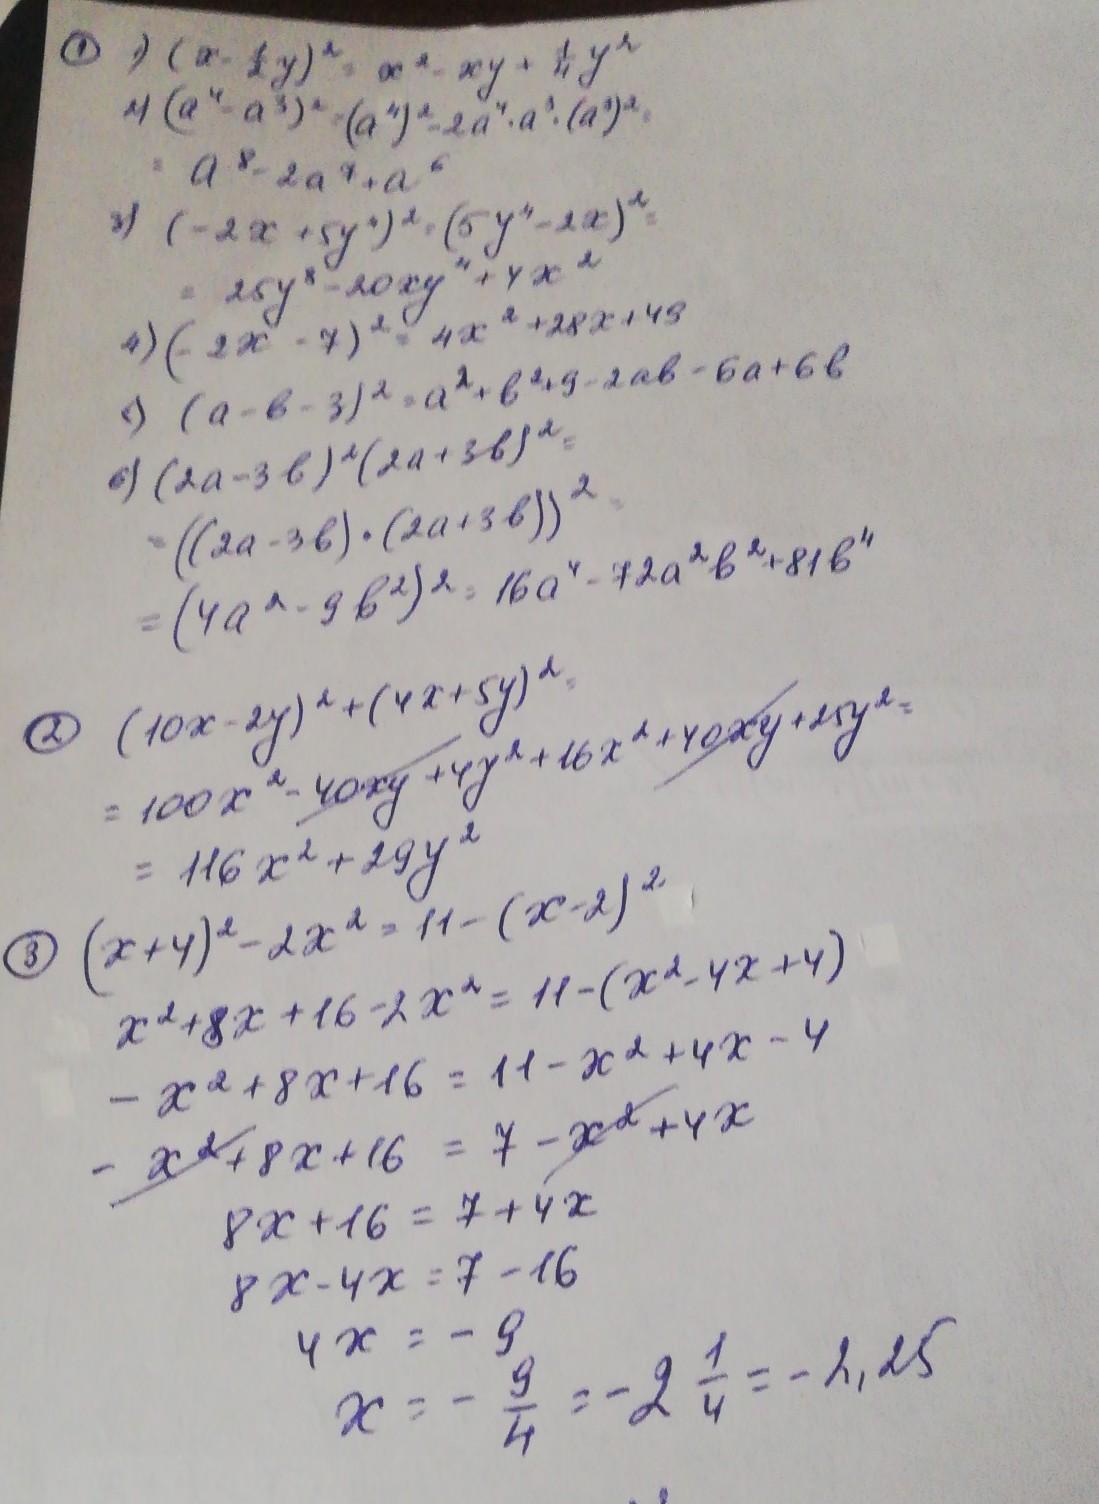 ① 1) (x - 1/2 y)² = x² - xy + 1/4 y²
2) (a⁴ - a³)² = (a⁴)² - 2a⁴ · a³ · (a³)² =
= a⁸ - 2a⁷ + a⁶
3) (-2x + 5y⁴)² = (5y⁴ - 2x)² =
= 25y⁸ - 20xy⁴ + 4x²
4) (-2x - 7)² = 4x² + 28x + 49
5) (a - b - 3)² = a² + b² + 9 - 2ab - 6a + 6b
6) (2a - 3b)² (2a + 3b)² =
= ((2a - 3b) · (2a + 3b))² =
= (4a² - 9b²)² = 16a⁴ - 72a²b² + 81b⁴
② (10x - 2y)² + (4x + 5y)² =
= 100x² - 40xy + 4y² + 16x² + 40xy + 25y² =
= 116x² + 29y²
③ (x + 4)² - 2x² = 11 - (x - 2)²
x² + 8x + 16 - 2x² = 11 - (x² - 4x + 4)
- x² + 8x + 16 = 11 - x² + 4x - 4
- x² + 8x + 16 = 7 - x² + 4x
8x + 16 = 7 + 4x
8x - 4x = 7 - 16
4x = - 9
x = - 9/4 = - 2 1/4 = - 2,25